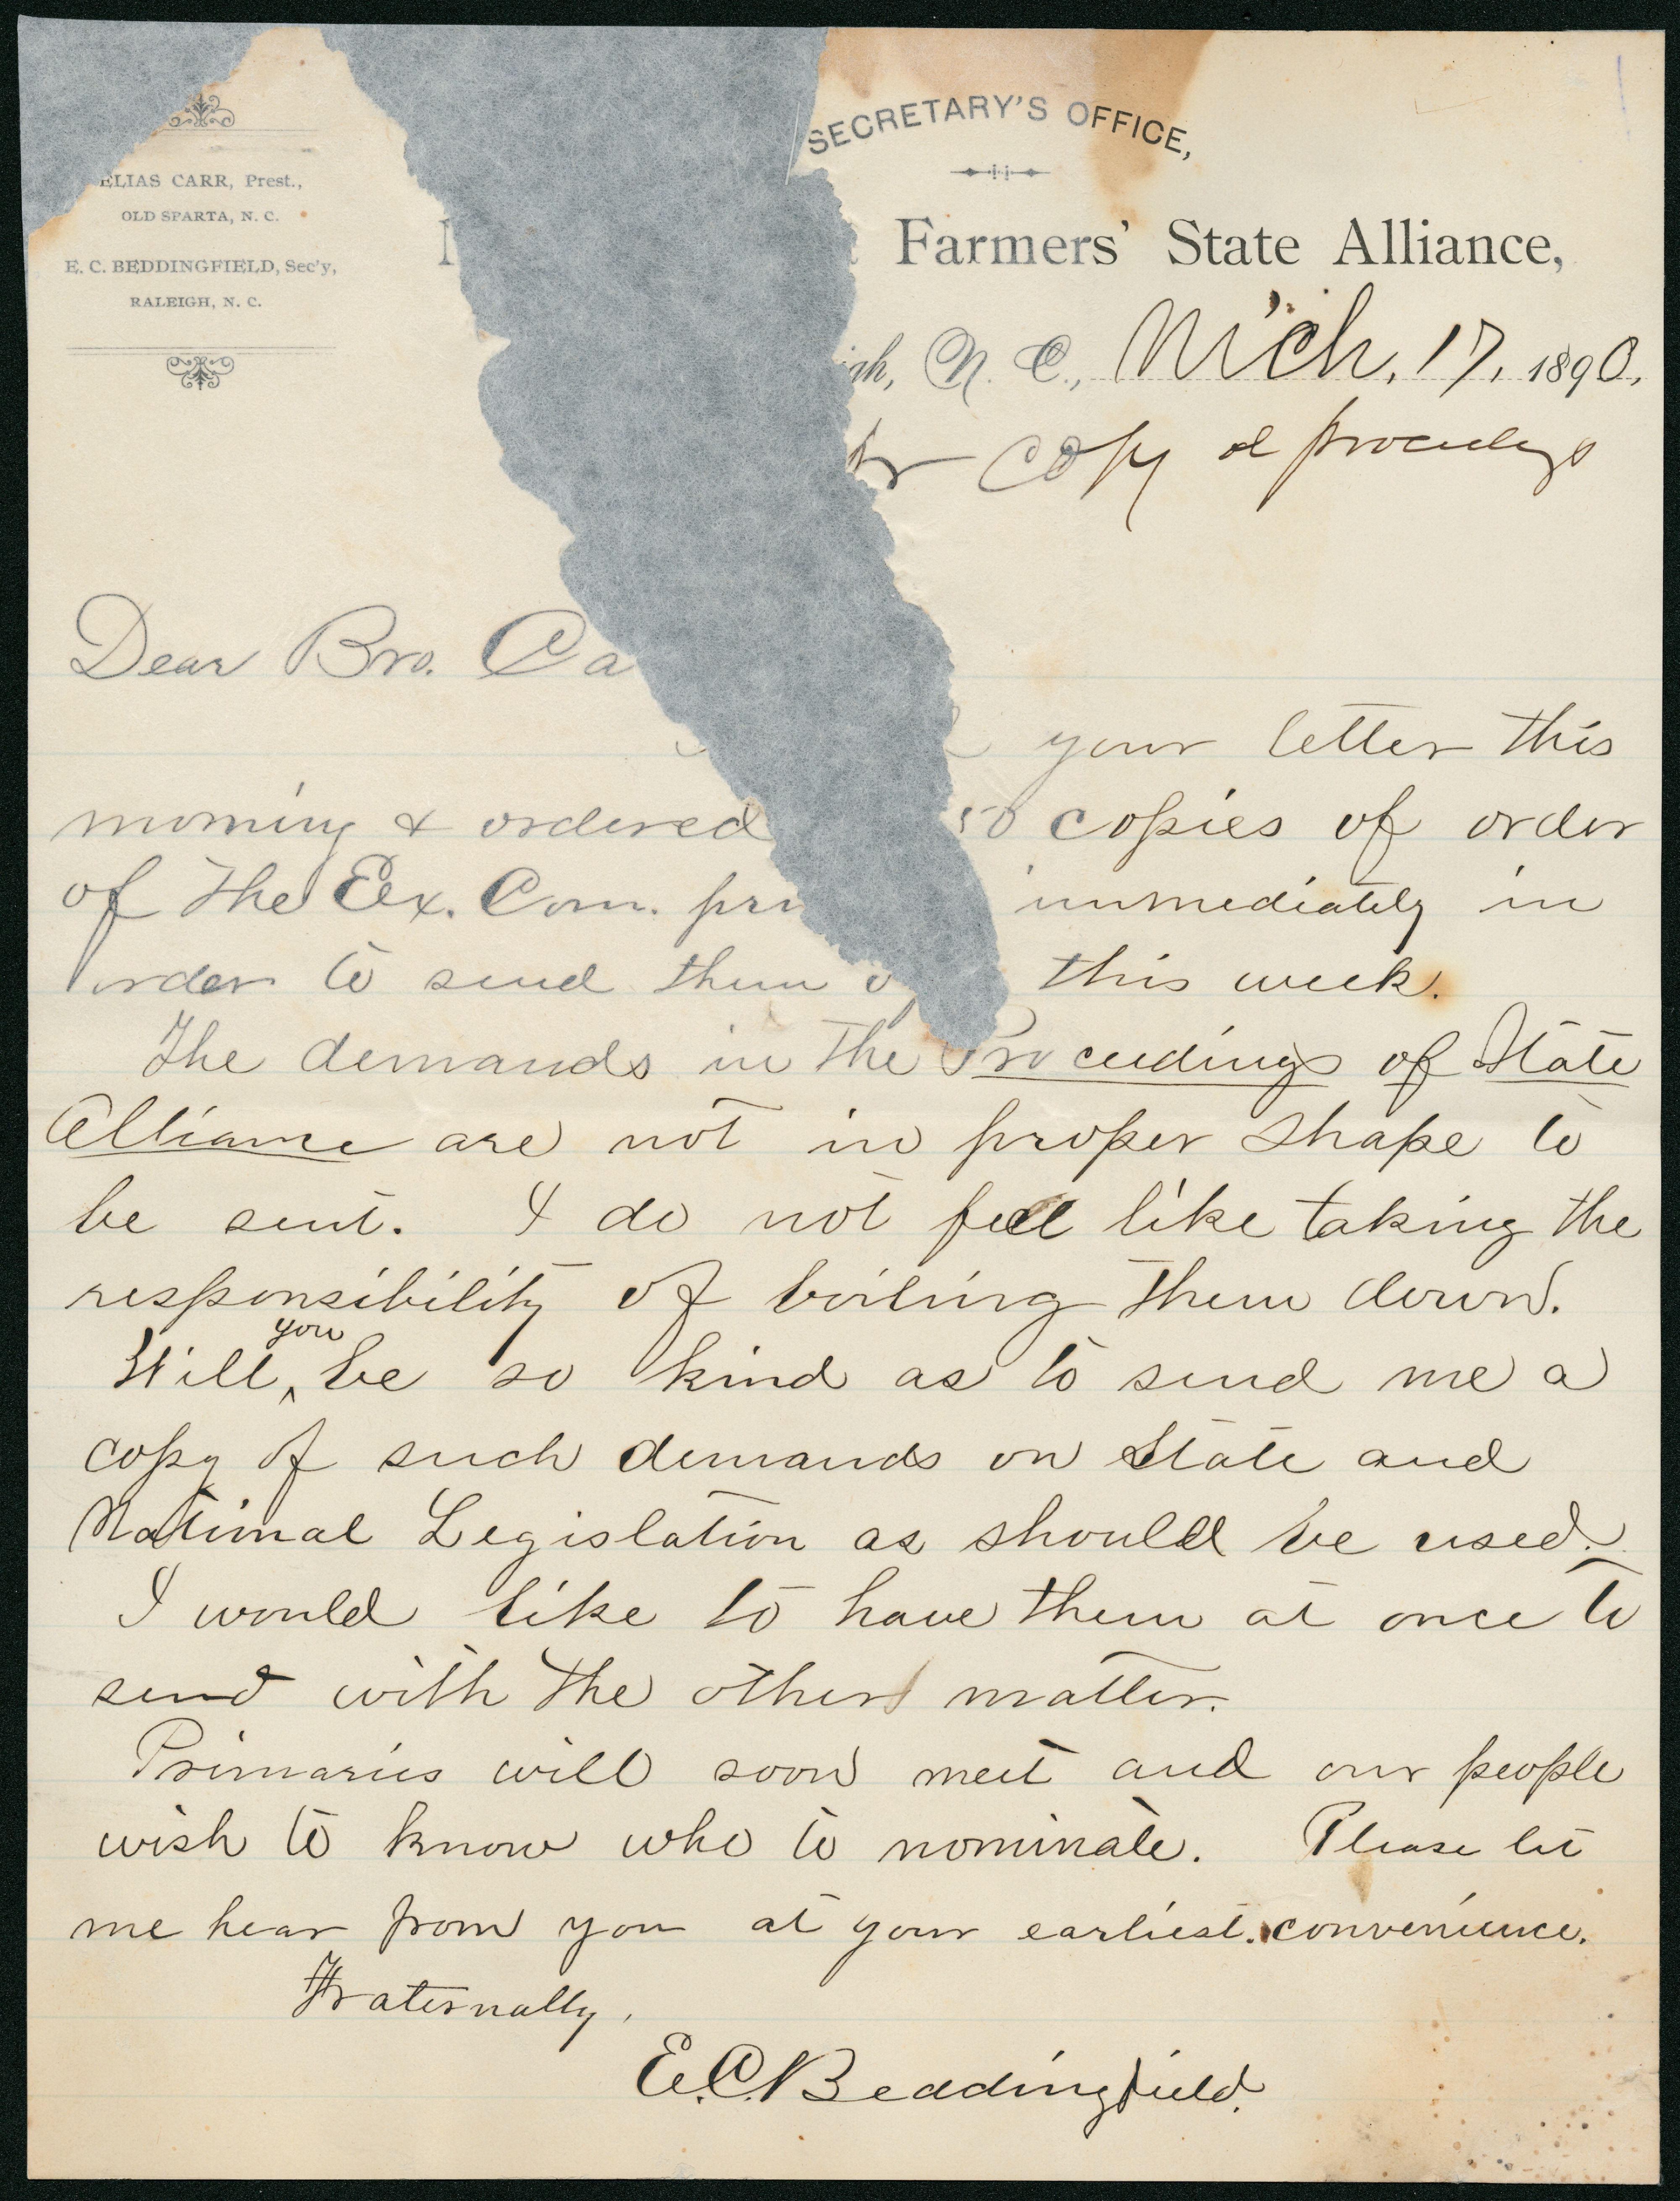 SECRETARY'S OFFICE,
ELIAS CARR, Prest.,
OLD SPARTA, N. C.
E. C. BEDDINGFIELD, Sec'y,
RALEIGH, N. C.
Farmers' State Alliance,
N. C., M'ch. 17, 1890.
copy of proceedings
Dear Bro. Ca
your letter this
morning & ordered 50 copies of order
of the Ex. Com. pri immediately in
order to send them o this week.
The demands in the Proceedings of State
Alliance are not in proper shape to
be sent. I do not feel like taking the
responsibility of boiling them down.
Will you be so kind as to send me a
copy of such demands on State and
National Legislation as should be used.
I would like to have them at once to
send with the other matter.
Primaries will soon meet and our people
wish to know who to nominate. Please let
me hear from you at your earliest convenience.
Fraternally,
E. C. Beddingfield.